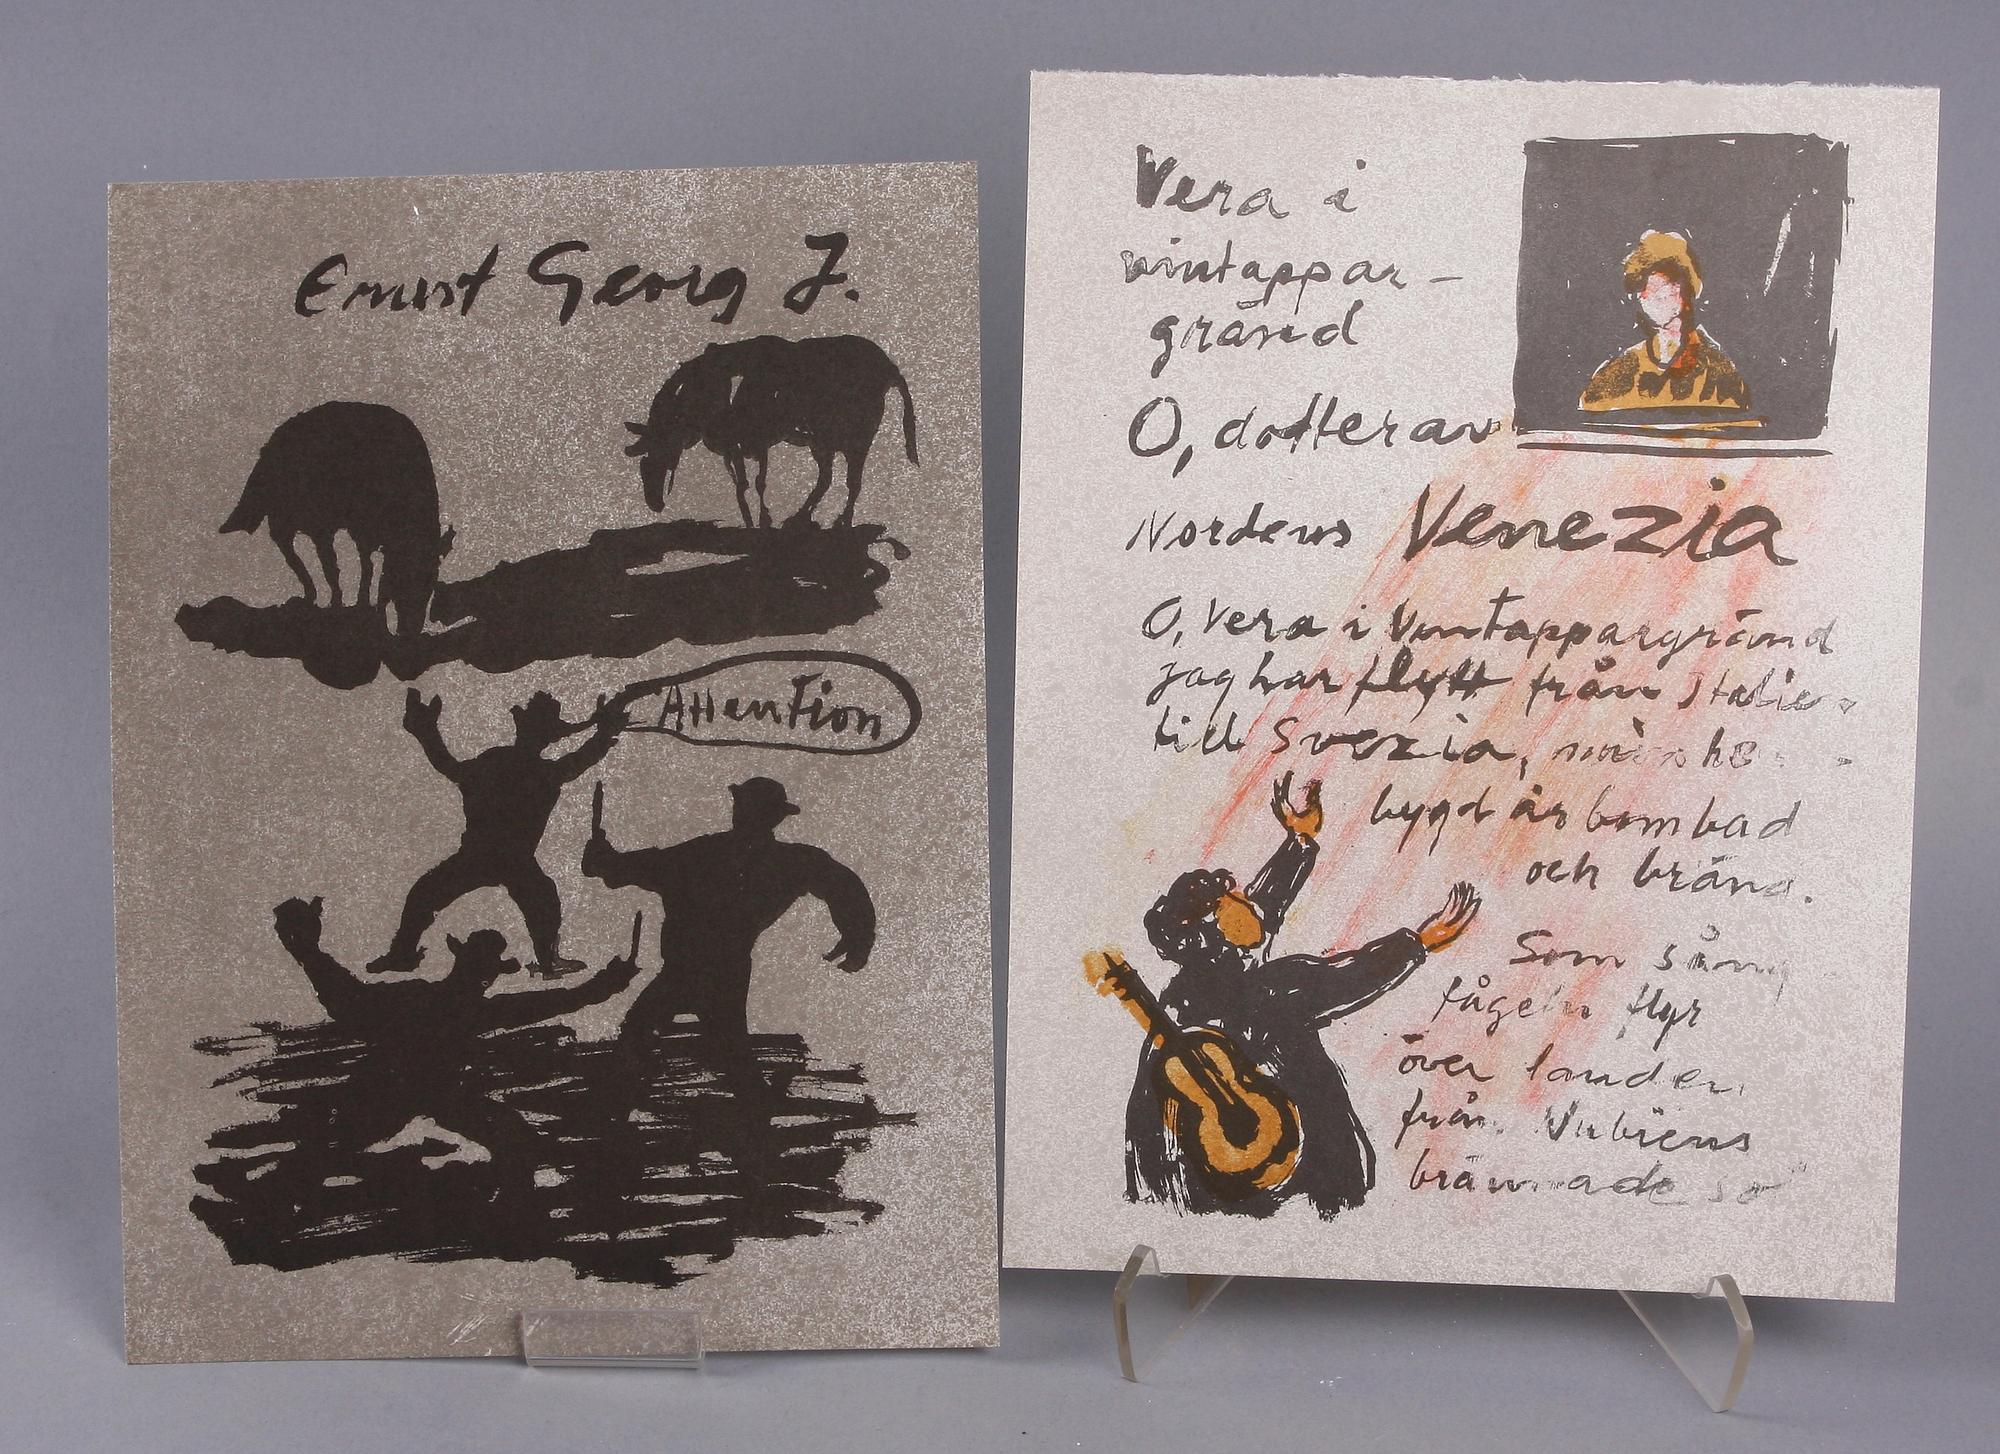 Ernst Georg J.
Attention
Vera i
vintappar-
gränd
O, dotter av
Nordens Venezia
O, Vera i Vintappargränd
jag har flytt från Italien
till Svezia, min he
bygd är bombad
och bränd.
Som sång
fågeln flyr
över landen
från Nubiens
brännade